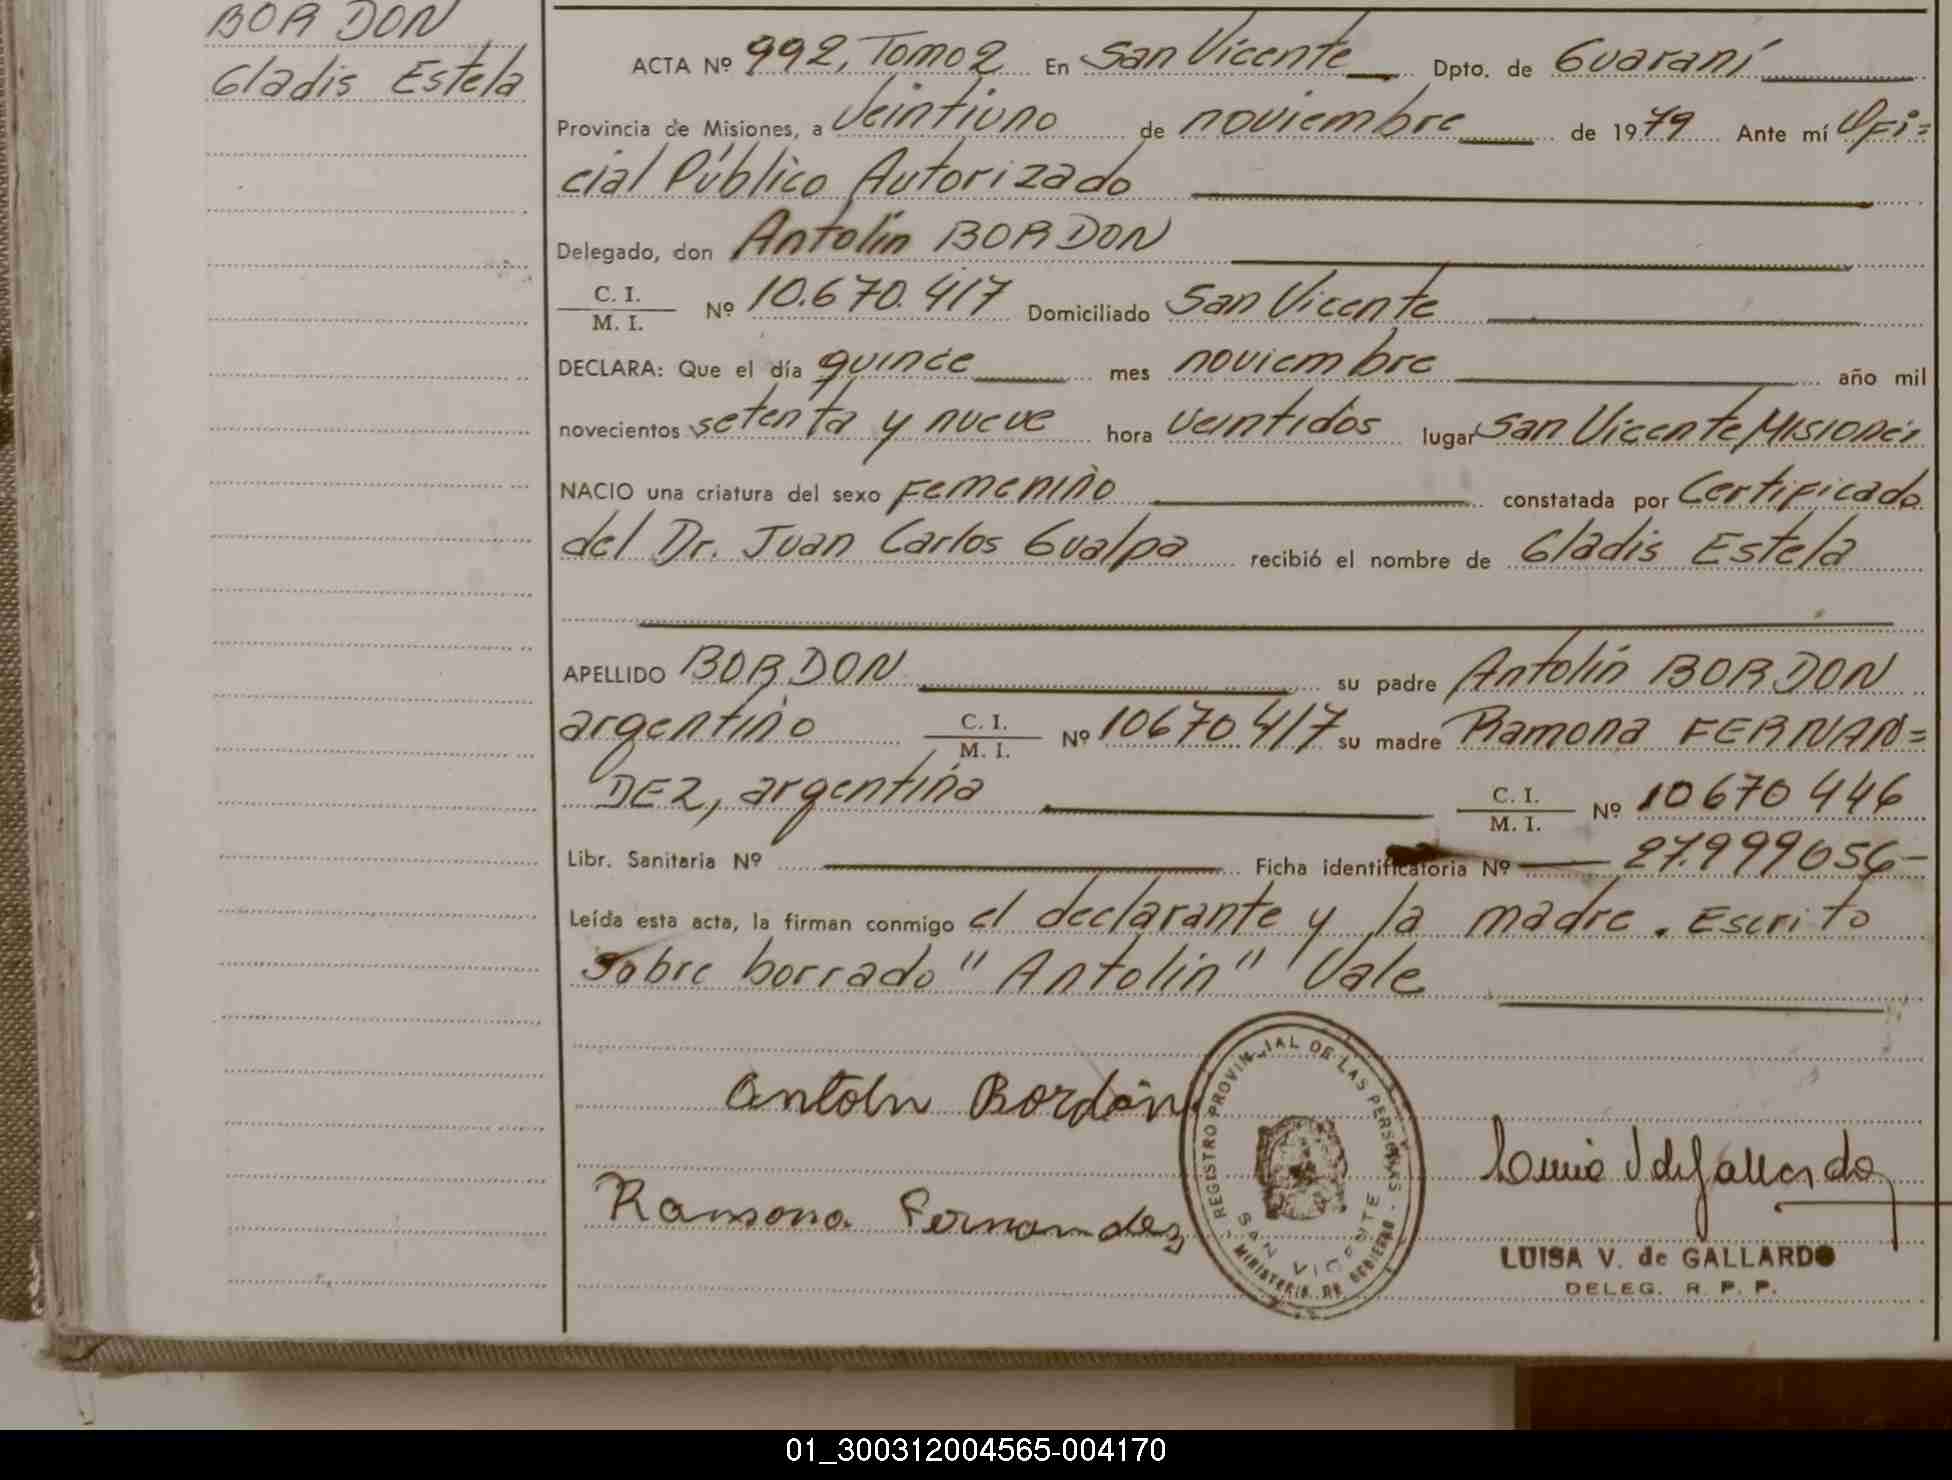 BORDON
Gladis Estela
ACTA Nº 992, Tomo 2 En San Vicente Dpto. de Guaraní
Provincia de Misiones, a Veintiuno de noviembre de 1979 Ante mí Ofi=
cial Público Autorizado
Delegado, don Antolín BORDON
C. I. / M. I. Nº 10.670.417 Domiciliado San Vicente
DECLARA: Que el día quince mes noviembre año mil
novecientos setenta y nueve hora veintidos lugar San Vicente Misiones
NACIO una criatura del sexo Femenino constatada por Certificado
del Dr. Juan Carlos Gualpa recibió el nombre de Gladis Estela
APELLIDO BORDON su padre Antolín BORDON
argentino C. I. / M. I. Nº 10670417 su madre Ramona FERNAN=
DEZ, argentina C. I. / M. I. Nº 10670446
Libr. Sanitaria Nº Ficha identificatoria Nº 27.999056-
Leída esta acta, la firman conmigo el declarante y la madre. Escrito
sobre borrado "Antolin" Vale
Antoln Bordón
Ramona Fernandez
REGISTRO PROVINCIAL DE LAS PERSONAS
SAN VICENTE
MINISTERIO DE GOBIERNO
Luisa V de Gallardo
LUISA V. de GALLARDO
DELEG. R. P. P.
01_300312004565-004170